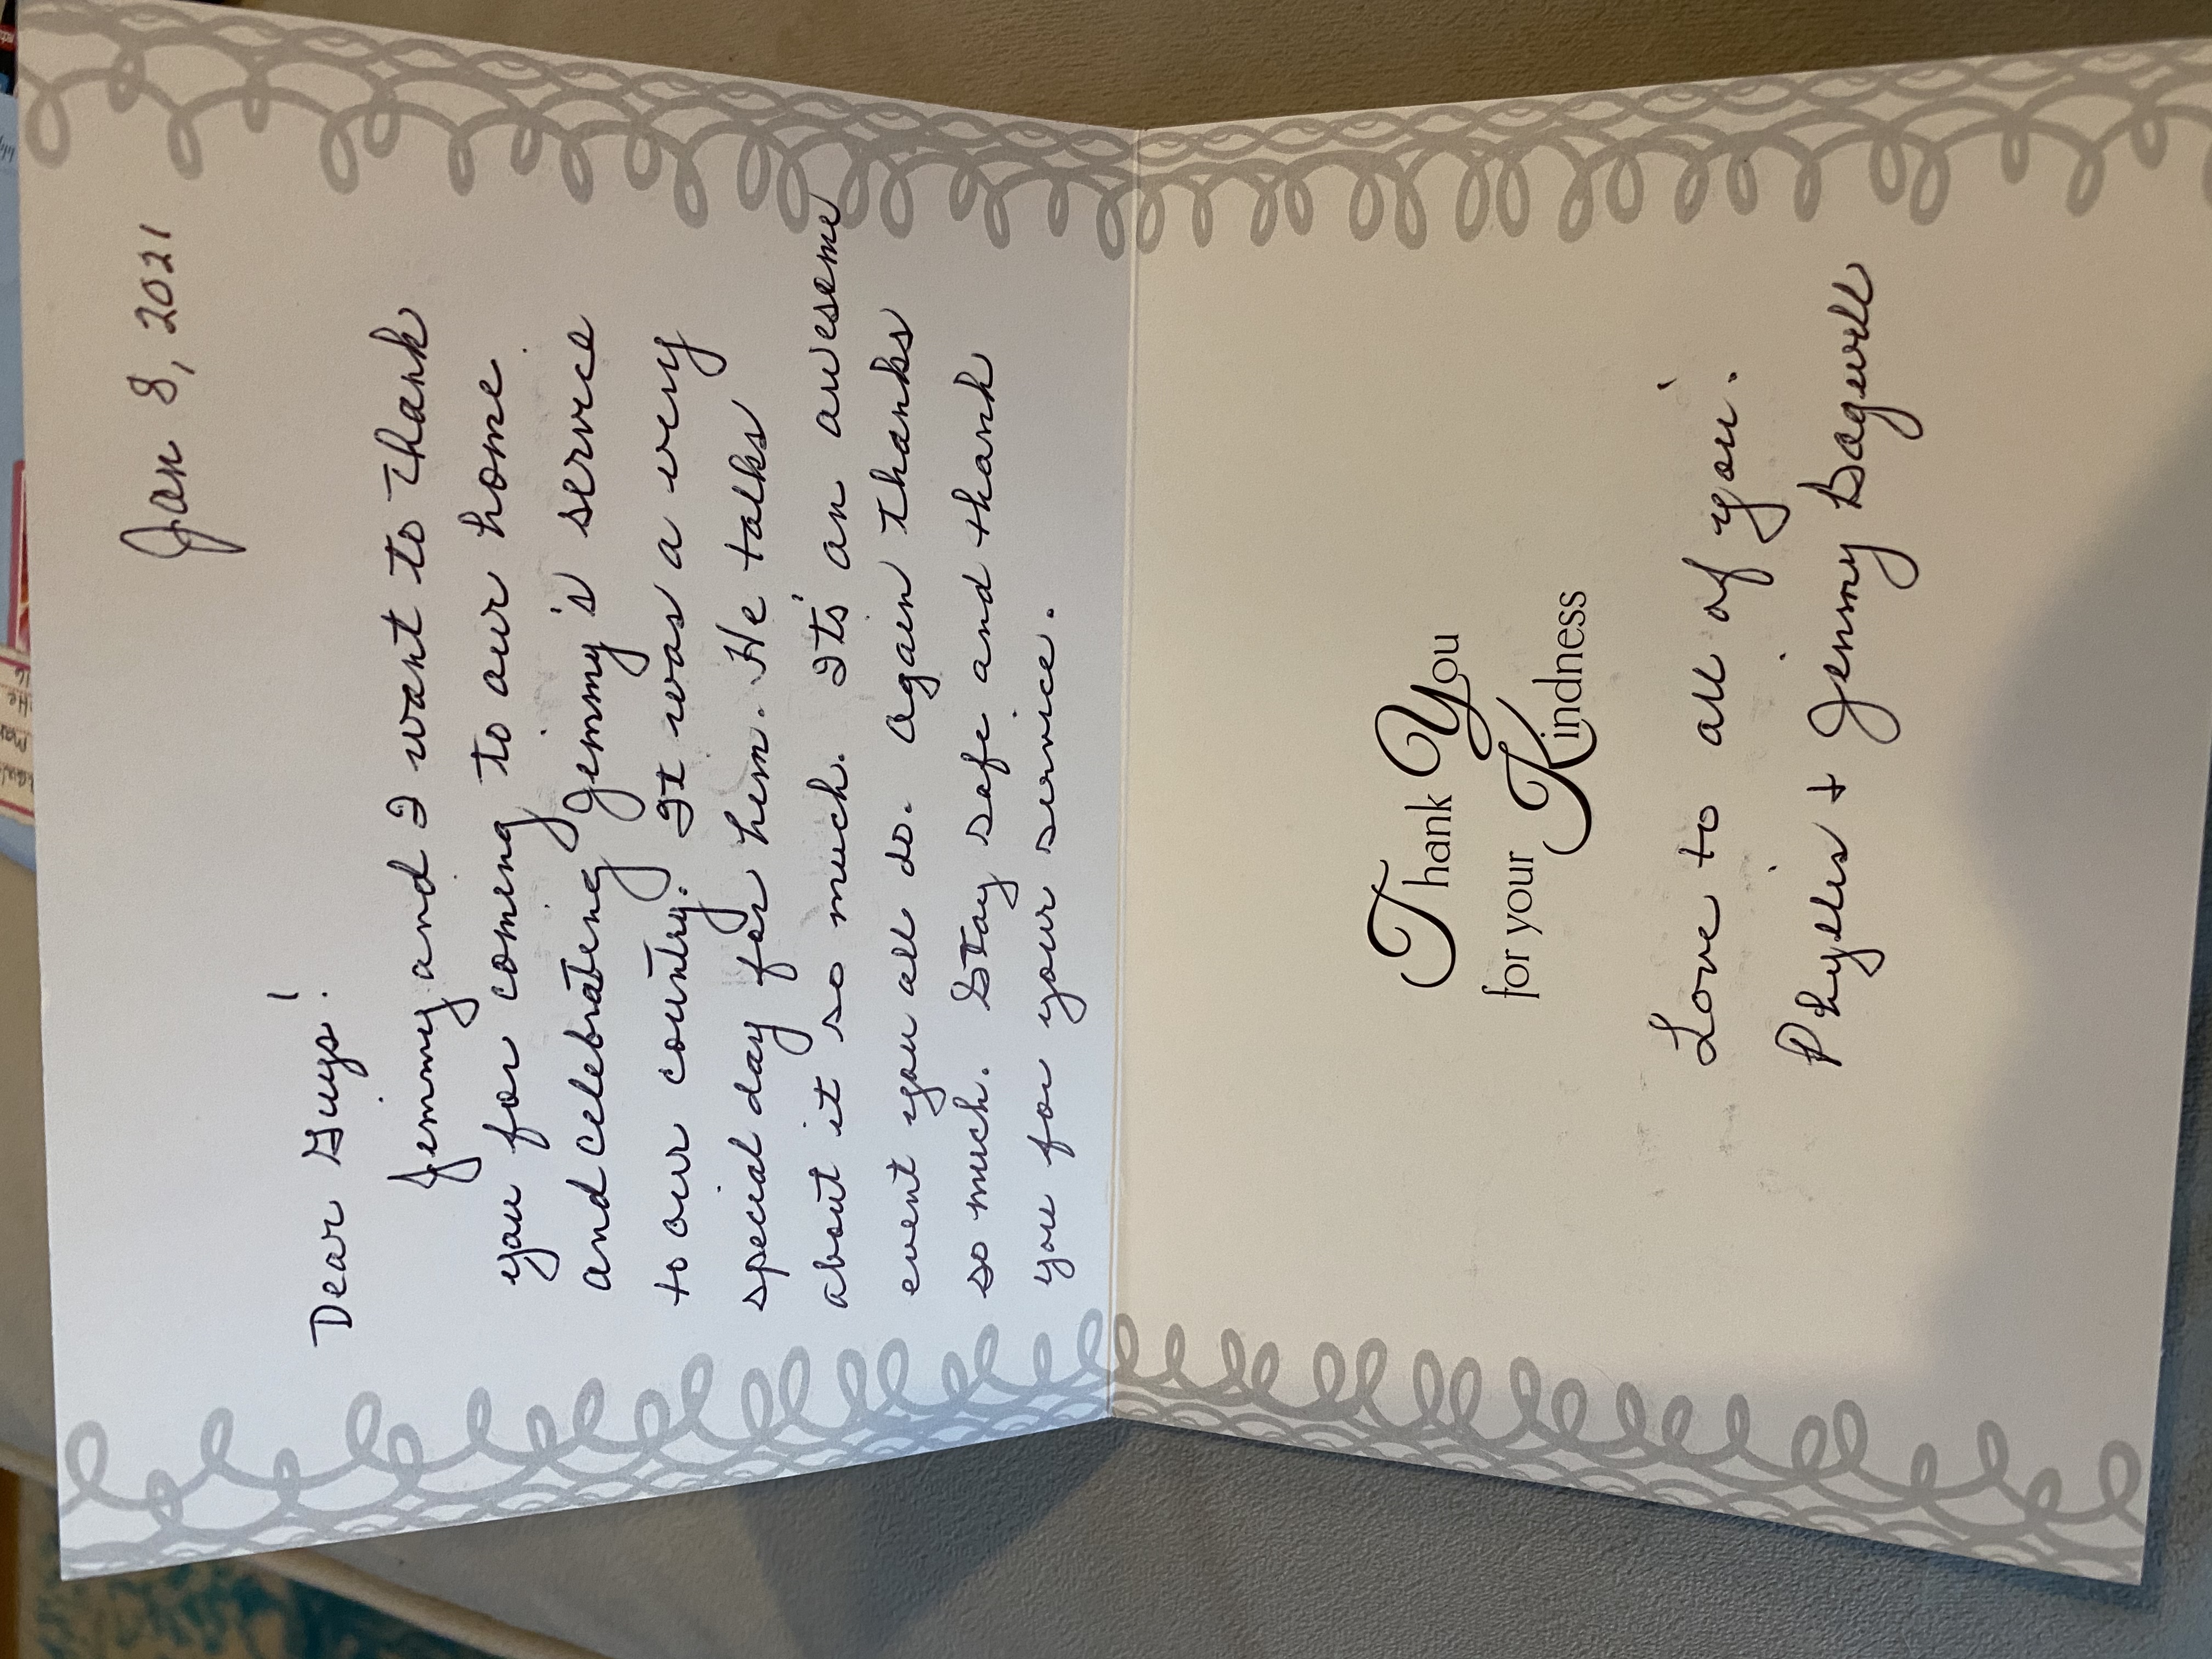 Jan 8, 2021
Dear Guys!
Jimmy and I want to thank
you for coming to our home
and celebrating Jimmy's service
to our country. It was a very
special day for him. He talks
about it so much. Its' an awesome
event you all do. Again thanks
so much. Stay safe and thank
you for your service.
Thank You
for your Kindness
Love to all of you.
Phyllis + Jimmy Bagwell